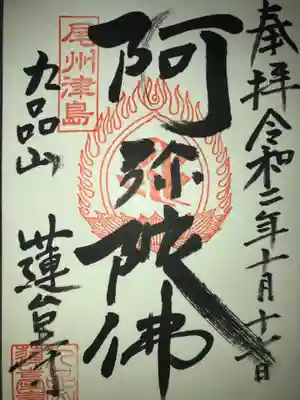 奉拝 令和二年十月十一日
阿弥陀佛
尾州津島
九品山
蓮台寺